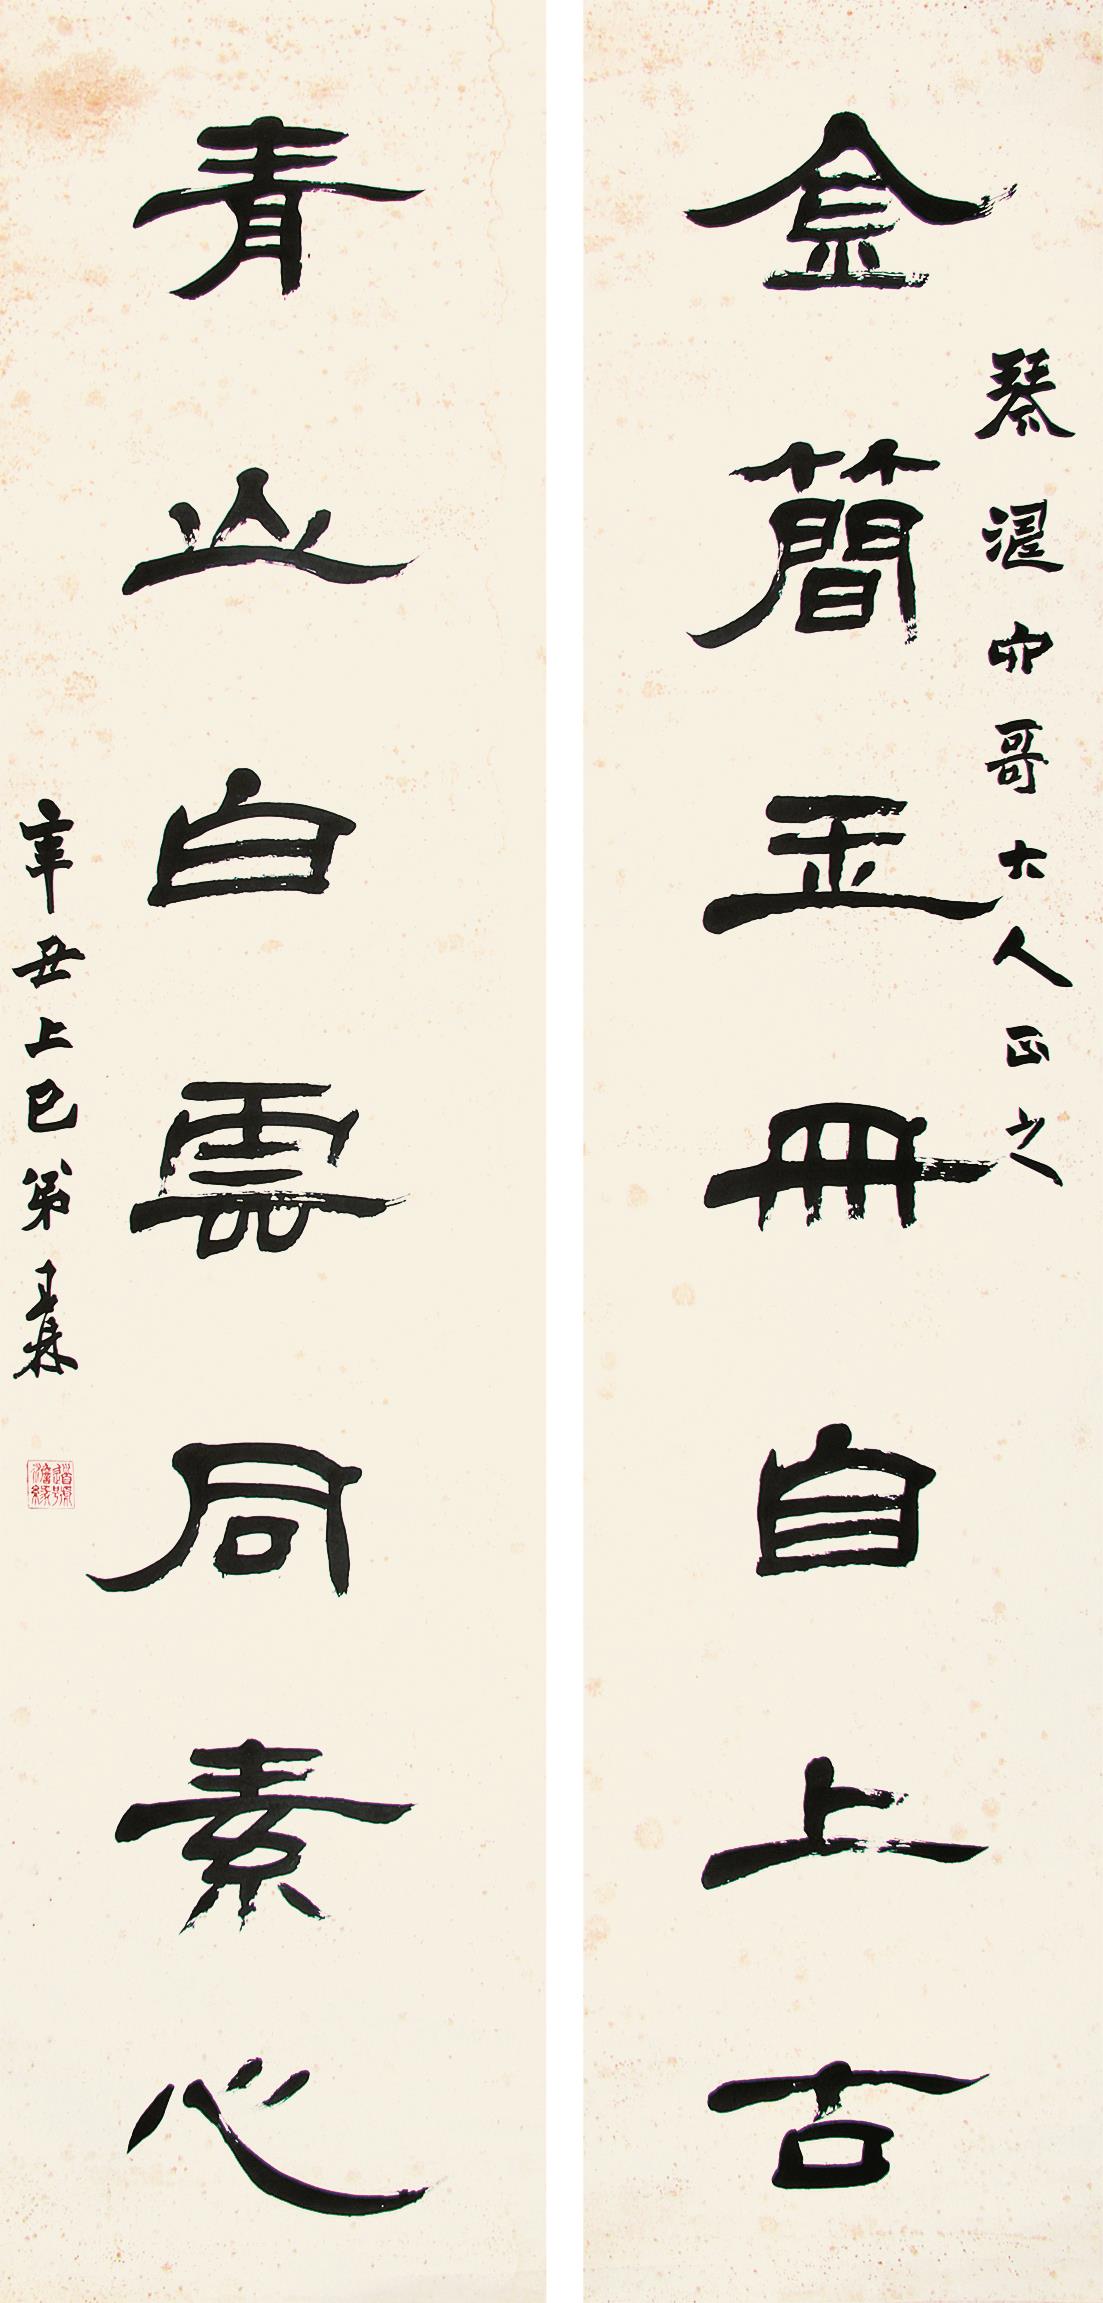 金簡玉冊自上古
琴涩仲哥大人正之
青山白雲同素心
辛丑上巳弟王森